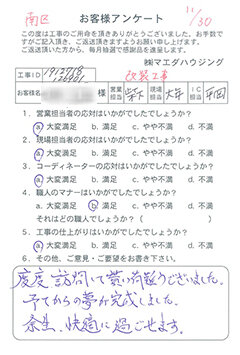 南区
11/30
お客様アンケート
この度は工事のご用命を頂きありがとうございました。お手数で
すがご記入頂き、ご返送頂きますようお願い申し上げます。
ご返送頂いた方から、毎月抽選で感謝品を進呈します。
㈱マエダハウジング
工事ID
改装工事
お客様名
様
営業担当
現場担当
IC担当 平岡
1．営業担当者の応対はいかがでしたでしょうか？
a 大変満足 b. 満足 c. やや不満 d. 不満
2．現場担当者の応対はいかがでしたでしょうか？
a 大変満足 b. 満足 c. やや不満 d. 不満
3．コーディネーターの応対はいかがでしたでしょうか？
a 大変満足 b. 満足 c. やや不満 d. 不満
4．職人のマナーはいかがでしたでしょうか？
a. 大変満足 b 満足 c. やや不満 d. 不満
それはどの職人でしょうか？（ ）
5．工事の仕上がりはいかがでしたでしょうか？
a 大変満足 b. 満足 c. やや不満 d. 不満
6．その他、ご意見・ご要望をお書き下さい。
度度訪問して貰い有難うございました。
予てからの夢が完成しました。
余生、快適に過ごせます。